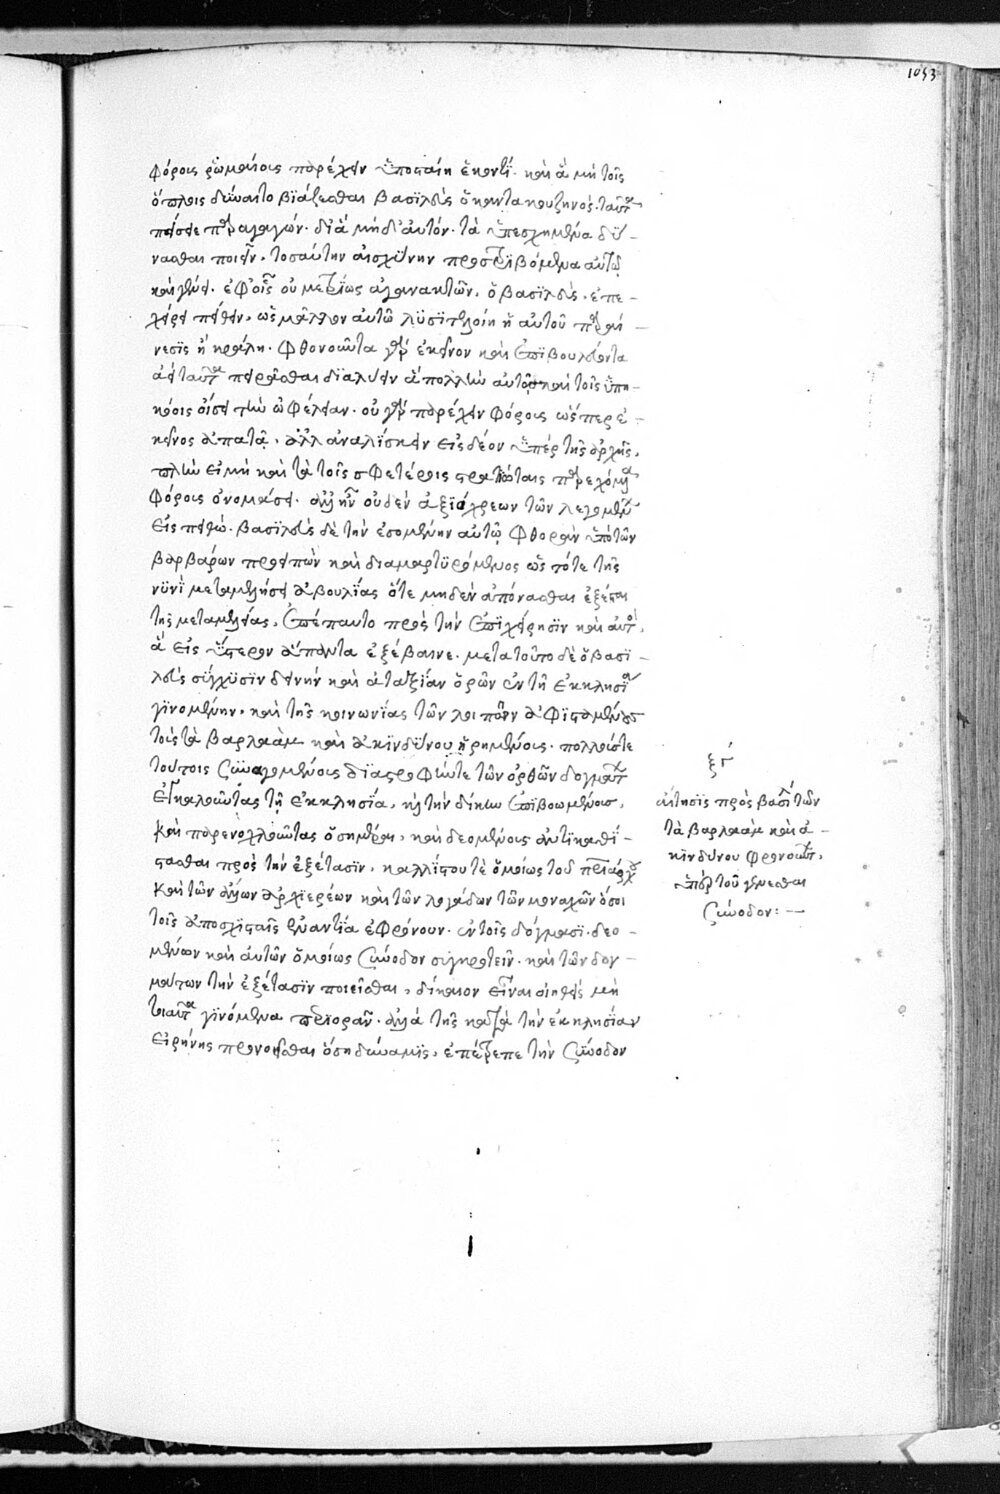 1053
φόροις ῥωμαίοις παρέχειν ὑποσταίη ἑκοντί. καὶ ἃ μὴ τοῖς
ὅπλοις δύναιτο βιάζεσθαι βασιλεὺς ὁ καντακουζηνὸς. ταῦτα
πείσειε παραγαγών. δι' ἃ μηδ' αὐτόν. τὰ ὑπεσχημένα δύ-
νασθαι ποιεῖν. τοσαύτην αἰσχύνην προστριβόμενα αὐτῷ
καὶ γένει. ἐφ' οἷς οὐ μετρίως ἀγανακτῶν. ὁ βασιλεὺς. ἐπε-
χείρει πείθειν. ὡς μᾶλλον αὐτῷ λυσιτελοίη ἡ αὐτοῦ παραί-
νεσις ἢ κράλη. φθονοῦντα γὰρ ἐκεῖνον καὶ ἐπιβουλεύοντα
ἀεὶ ταῦτα πειρᾶσθαι διαλύειν ἃ πολλὴν αὐτῷ καὶ τοῖς ὑπη-
κόοις οἴσει τὴν ὠφέλειαν. οὐ γὰρ παρέχειν φόρους ὥσπερ ἐ-
κεῖνος ἀπατᾷ. ἀλλ' ἀναλίσκειν εἰς δέον ὑπὲρ τῆς ἀρχῆς.
πλὴν εἰ μὴ καὶ τὰ τοῖς σφετέροις στρατιώταις παρεχόμενα
φόρους ὀνομάσει. ἀλλ' ἦν οὐδὲν ἀξιόχρεων τῶν λεγομένων
εἰς πειθώ. βασιλεὺς δὲ τὴν ἐσομένην αὐτῷ φθορὰν ὑπὸ τῶν
βαρβάρων προειπὼν καὶ διαμαρτυρόμενος ὡς τότε τῆς
νυνὶ μεταμελήσει ἀβουλίας ὅτε μηδὲν ἀπόνασθαι ἐξέσται
τῆς μεταμελείας. ἐπέπαυτο πρὸς τὴν ἐπιχείρησιν καὶ αὐτὸς.
ἃ εἰς ὕστερον ἅπαντα ἐξέβαινε. μετὰ τοῦτο δὲ ὁ βασι-
λεὺς σύγχυσιν δεινὴν καὶ ἀταξίαν ὁρῶν ἐν τῇ ἐκκλησίᾳ
γινομένην. καὶ τῆς κοινωνίας τῶν λοιπῶν ἀφισταμένους
τοὺς τὰ βαρλαὰμ καὶ ἀκινδύνου ᾑρημένους. πολλούς τε
τούτοις συναγομένους διαστροφήν τε τῶν ὀρθῶν δογμάτων
ἐγκαλοῦντας τῇ ἐκκλησίᾳ, καὶ τὴν δίκην ἐπιβοωμένους,
καὶ παρενοχλοῦντας ὁσημέραι, καὶ δεομένους ἀντικαθί-
στασθαι πρὸς τὴν ἐξέτασιν, καλλίστου τὲ ὁμοίως τοῦ πατριάρχου
καὶ τῶν ἄλλων ἀρχιερέων καὶ τῶν λογάδων τῶν μοναχῶν ὅσοι
τοῖς ἀποσχισταῖς ἐναντία ἐφρόνουν. ἐν τοῖς δόγμασι. δεο-
μένων καὶ αὐτῶν ὁμοίως σύνοδον συγκροτεῖν. καὶ τῶν δογ-
μάτων τὴν ἐξέτασιν ποιεῖσθαι, δίκαιον εἶναι οἰηθεὶς μὴ
τοιαῦτα γινόμενα περιορᾶν. ἀλλὰ τῆς κατὰ τὴν ἐκκλησίαν
εἰρήνης προνοεῖσθαι ὅση δύναμις, ἐπέτρεπε τὴν σύνοδον
ξγ
αἴτησις πρὸς βασιλέα τῶν
τὰ βαρλαὰμ καὶ ἀ-
κινδύνου φρονούντων,
ὑπὲρ τοῦ γενέσθαι
σύνοδον: —